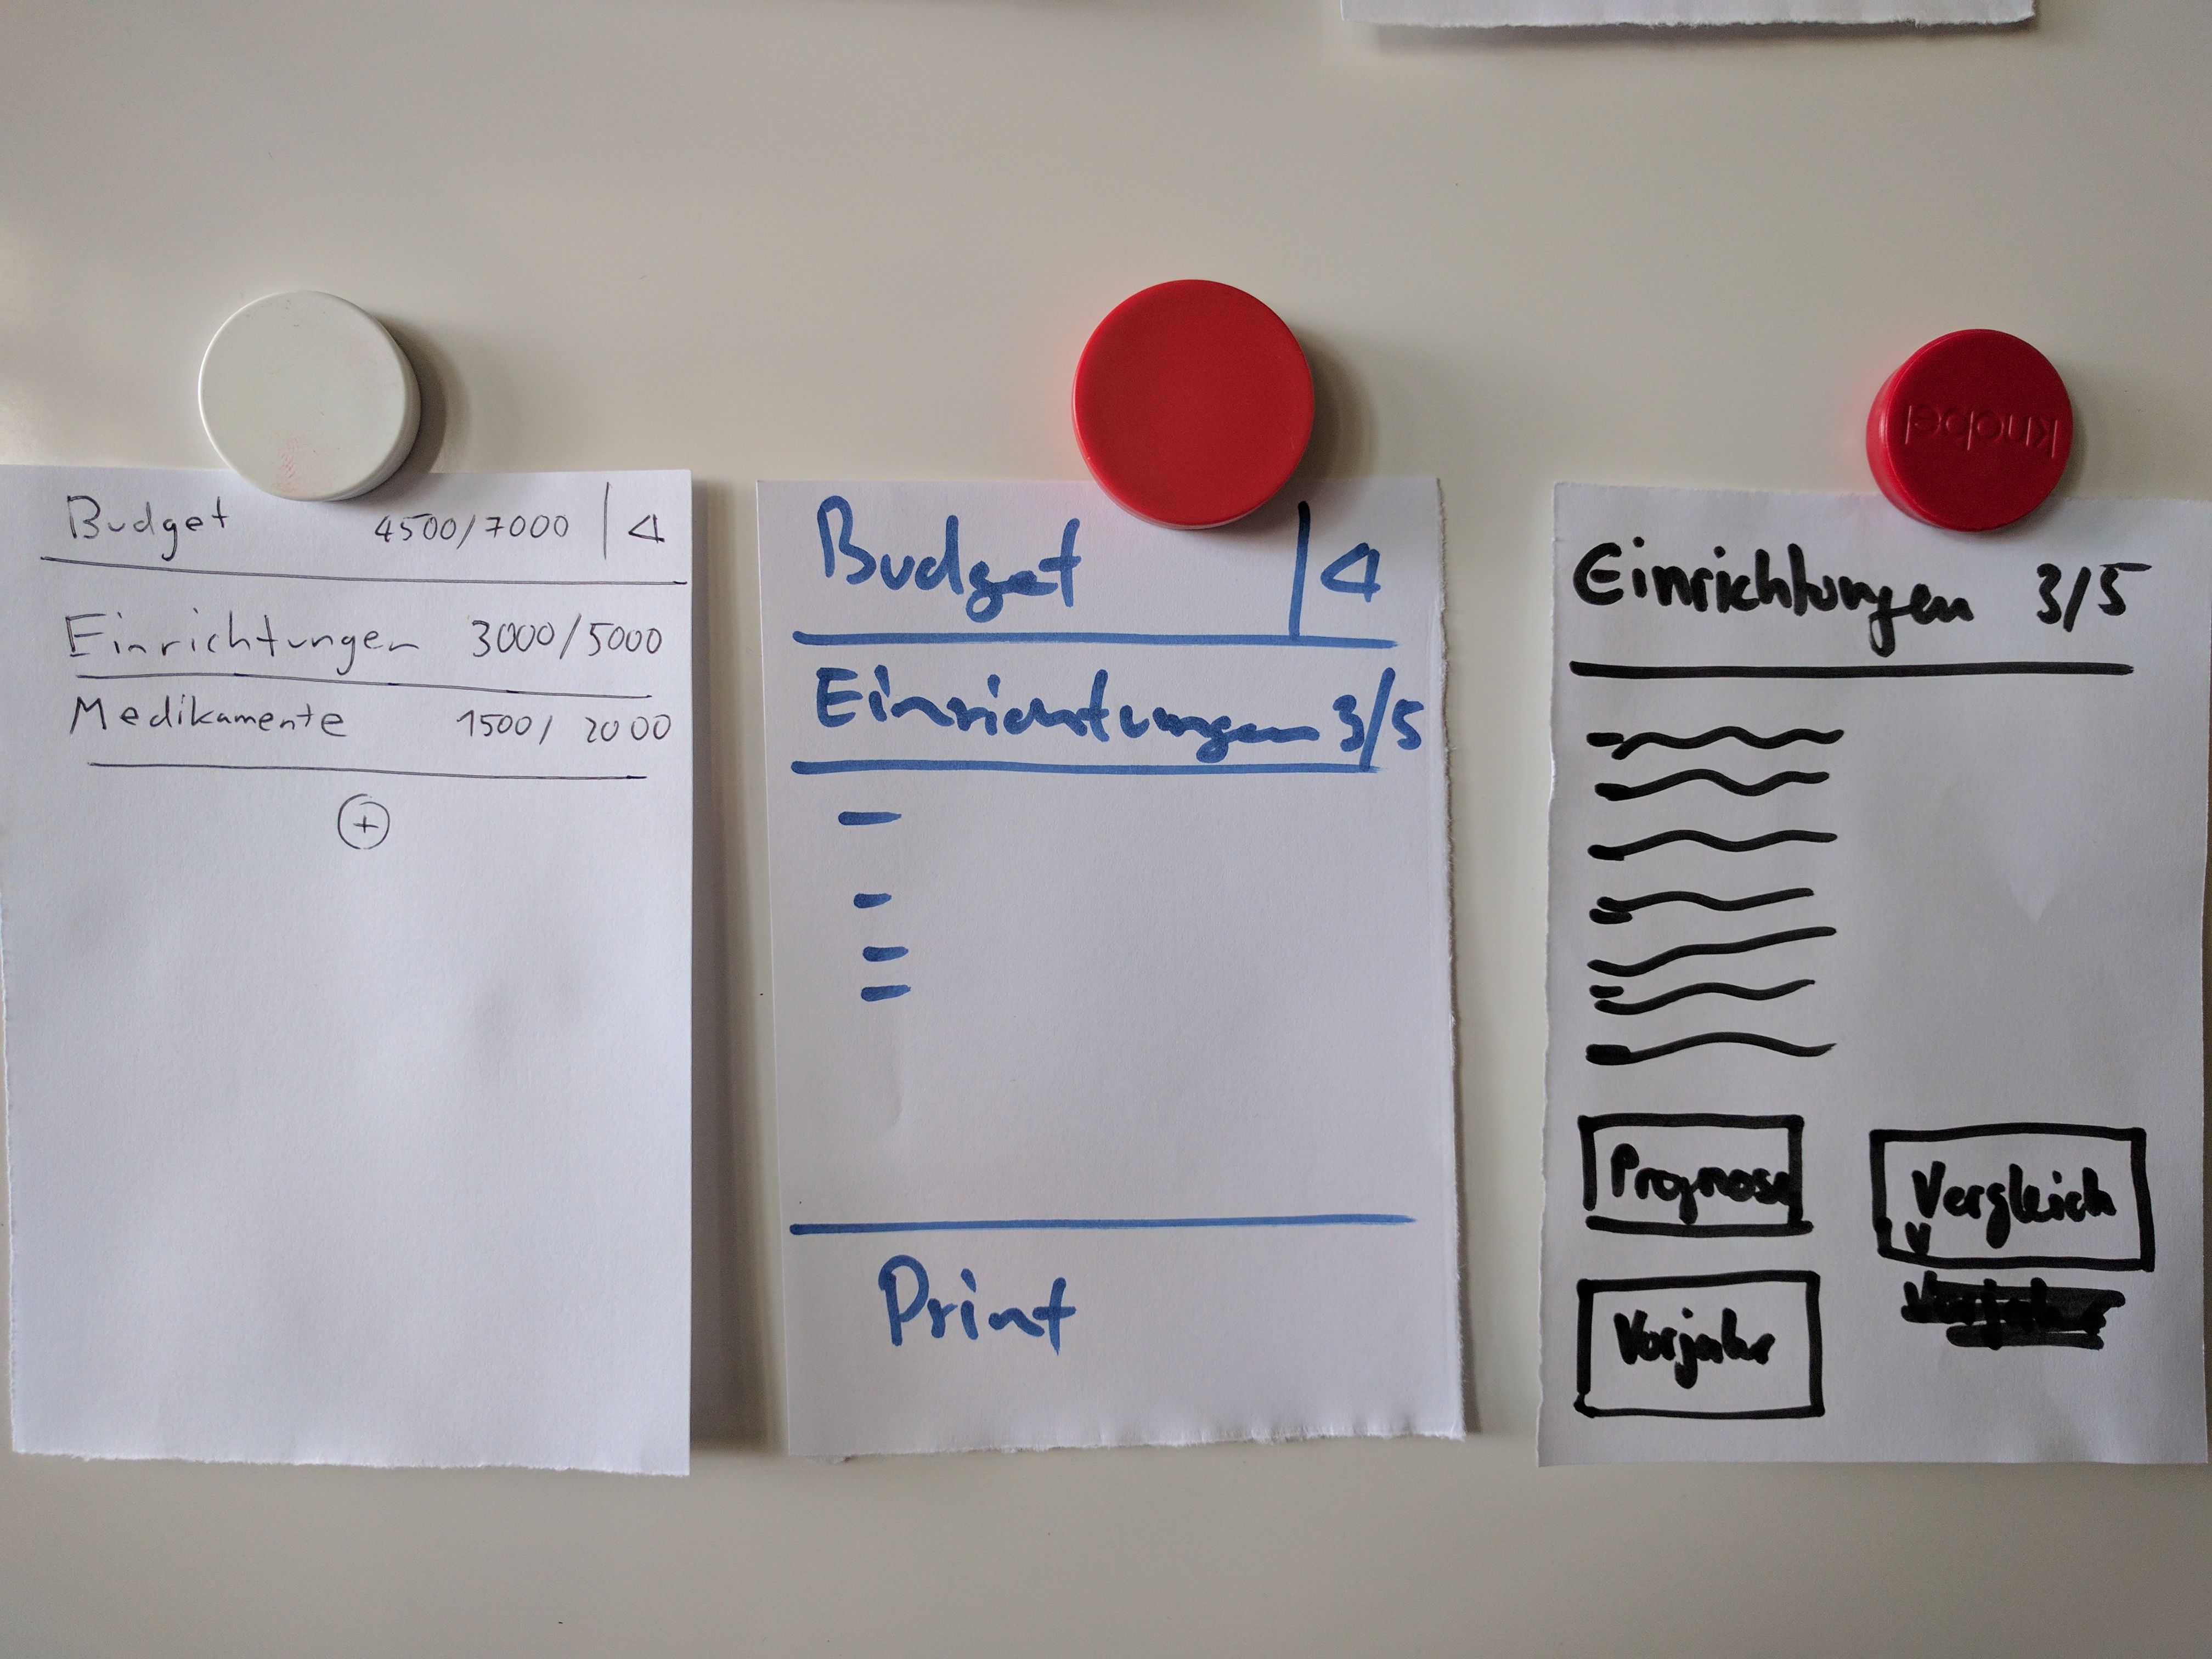 Budget 4500/7000
Einrichtungen 3000/5000
Medikamente 1500/2000
+
Budget
Einrichtungen 3/5
Print
knobel
Einrichtungen 3/5
Prognose
Vergleich
V
Vorjahr